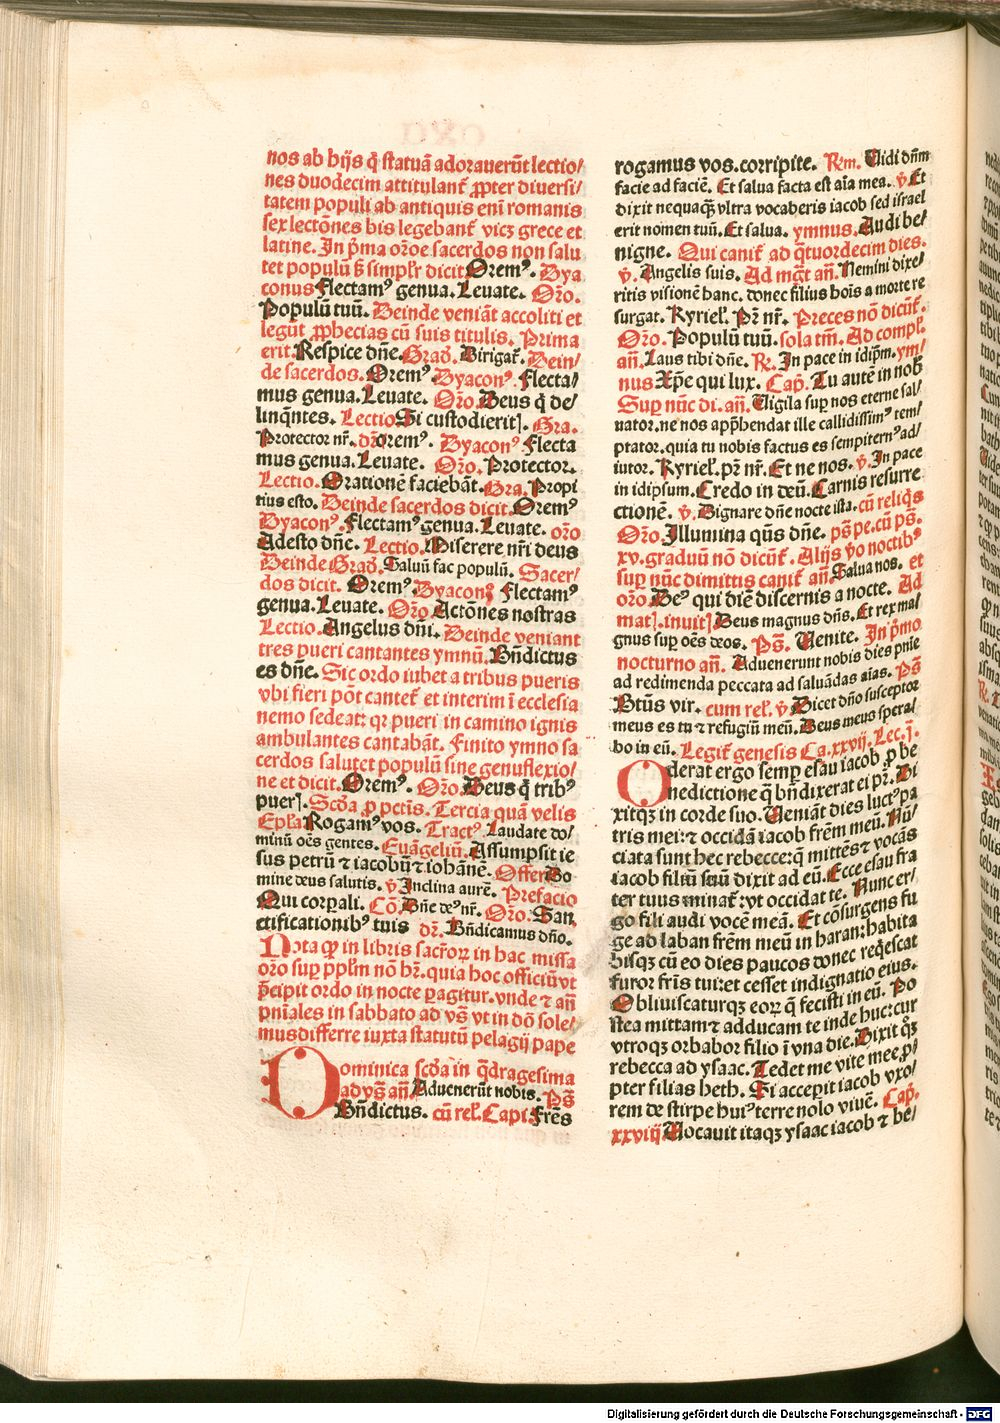 nos ab hijs q̄ statuā adorauerūt lectio/
nes duodecim attitulant᷑ ꝓpter diuersi/
tatem populi ab antiquis eni᷑ romanis
sex lectōnes bis legebant᷑ vicꝫ grece et
latine. In p̄ma or̄oe sacerdos non salu
tet populū ß simpl'r dicit Orem⁹. Dya
conus Flectam⁹ genua. Leuate. Or̄o.
Populū tuū. Deinde veniāt accoliti et
legūt ꝓphecias cū suis titulis. Prima
erit Respice dn̄e. Grad᷑. Dirigat᷑. Dein/
de sacerdos. Orem⁹ Dyacon⁹. Flecta/
mus genua. Leuate. Or̄o. Deus q̄ de/
linq̄ntes. Lectio Si custodierit]. Gra.
Protector nr̄. dr̄ Orem⁹. Dyacon⁹ Flecta
mus genua. Leuate. Or̄o. Protector.
Lectio. Orationē faciebāt. Gra. Propi
tius esto. Deinde sacerdos dicit. Orem⁹
Dyacon⁹. Flectam⁹ genua. Leuate. oro
Adesto dn̄e. Lectio. Miserere nr̄i deus
Deinde Grad᷑. Saluū fac populū. Sacer/
dos dicit. Orem⁹ Dyacon⁹ Flectam⁹
genua. Leuate. Or̄o Actōnes nostras
Lectio. Angelus dn̄i. Deinde veniant
tres pueri cantantes ymnū. Bn̄dictus
es dn̄e. Sic ordo iubet a tribus pueris
vbi fieri pōt cantet᷑ et interim ī ecclesia
nemo sedeat: qꝛ pueri in camino ignis
ambulantes cantabāt. Finito ymno sa
cerdos salutet populū sine genuflexio/
ne et dicit. Orem⁹. Or̄o. Deus q̄ trib⁹
puer]. Scd̄a ꝓ pctīs. Tercia quā velis
Epl̄a Rogam⁹ vos. Tract⁹. Laudate do/
minū oēs gentes. Euāgeliū. Assumpsit ie
sus petrū ⁊ iacobū ⁊ iohānē. Offer Do
mine deus salutis. v̄ Inclina aurē. Prefacio
Qui corꝑali. Cō. Dn̄e de⁹ nr̄. Or̄o. San
ctificationib⁹ tuis dr̄. Bn̄dicamus dn̄o.
Nota qꝙ in libris sacr̄oꝝ in hac missa
or̄o suꝑ pp̄lm nō hr̄. quia hoc officiū vt
p̄cipit ordo in nocte ꝑagitur. vnde ⁊ an̄
pn̄iales in sabbato ad vs̄ vt in dō sole/
mus differre iuxta statutū pelagij pape
Dominica scd̄a in q̄dragesima
ad vs̄ an̄. Aduenerūt nobis. Ps̄
Bn̄dictus. cū rel'. Capi. Fr̄es
rogamus vos. corripite. Rm. Vidi dn̄m
facie ad faciē. Et salua facta est aīa mea. v̄ Et
dixit nequaqꝫ vltra vocaberis iacob sed israel
erit nomen tuū. Et salua. ymnus. Audi be/
nigne. Qui canit᷑ ad q̄tuordecim dies.
v̄. Angelis suis. Ad mḡt an̄. Nemini dixe/
ritis visionē hanc. donec filius hoīs a morte re
surgat. Kyriel'. Pr̄ nr̄. Preces nō dicūt᷑.
Or̄o. Populū tuū. sola tm̄. Ad compl'.
an̄. Laus tibi dn̄e. R̄. In pace in idip̄m. ym/
nus Xp̄e qui lux. Cap̄. Tu autē in nob
Suꝑ nūc di. an̄. Vigila suꝑ nos eterne sal/
uator. ne nos app̄hendat ille callidissim⁹ tem/
ptator. quia tu nobis factus es sempitern⁹ ad/
iutor. Kyriel'. pr̄ nr̄. Et ne nos. v̄. In pace
in idipsum. Credo in deū. Carnis resurre
ctionē. v̄. Dignare dn̄e nocte ista. cū reliq̄s
Or̄o. Illumina qūs dn̄e. ps̄ pe. cū ps̄.
xv. graduū nō dicūt᷑. Alijs v̄o noctib⁹
suꝑ nūc dimittis canit᷑ an̄. Salua nos. et
or̄o. De⁹ qui diē discernis a nocte. Ad
mat]. inuit] Deus magnus dn̄s. Et rex mal
gnus suꝑ oēs deos. Ps̄. Venite. In p̄mo
nocturno an̄. Aduenerunt nobis dies pn̄ie
ad redimenda peccata ad saluādas aīas. Ps̄
Btūs vir. cum rel'. v̄ Dicet dn̄o susceptor
meus es tu ⁊ refugiū meū. Deus meus spera/
bo in eū. Legit᷑ genesis Ca. xxvij. Lec. j.
Oderat ergo semꝑ esau iacob ꝓ be
nedictione q̄ bn̄dixerat ei pr̄. Di
xitqꝫ in corde suo. Veniāt dies luct⁹ pa
tris mei: ⁊ occidā iacob fr̄em meū. Nū/
ciata sunt hec rebecce: q̄ mittēs ⁊ vocās
iacob filiū suū dixit ad eū. Ecce esau fra
ter tuus minat᷑: vt occidat te. Nunc er/
go fili audi vocē meā. Et cōsurgens fu
ge ad laban fr̄em meū in haran: habita
bisqꝫ cū eo dies paucos donec reqēscat
furor fr̄is tui: et cesset indignatio eius.
Obliuiscaturqꝫ eoꝝ q̄ fecisti in eū. Po
stea mittam ⁊ adducam te inde huc: cur
vtroqꝫ orbabor filio ī vna die. Dixit q̄ꝫ
rebecca ad ysaac. Tedet me vite mee ꝓ/
pter filias heth. Si acceꝑit iacob vxo/
rem de stirpe hui⁹ terre nolo viuē. Cap̄.
xxviij Vocauit itaqꝫ ysaac iacob ⁊ be/
Digitalisierung gefördert durch die Deutsche Forschungsgemeinschaft - DFG